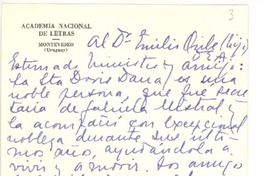 3
ACADEMIA NACIONAL
DE LETRAS
MONTEVIDEO
(Uruguay)
Al Dr. Emilio Oribe (hijo)
O.E.A.
Estimado Ministro y amigo:
La Sta Doris Dana, es una
noble persona, que fue secre
taria de Gabriela Mistral y
la acompañó con excepcional
nobleza durante sus últi
mos años, ayudándola a
vivir y a morir. Los amigo